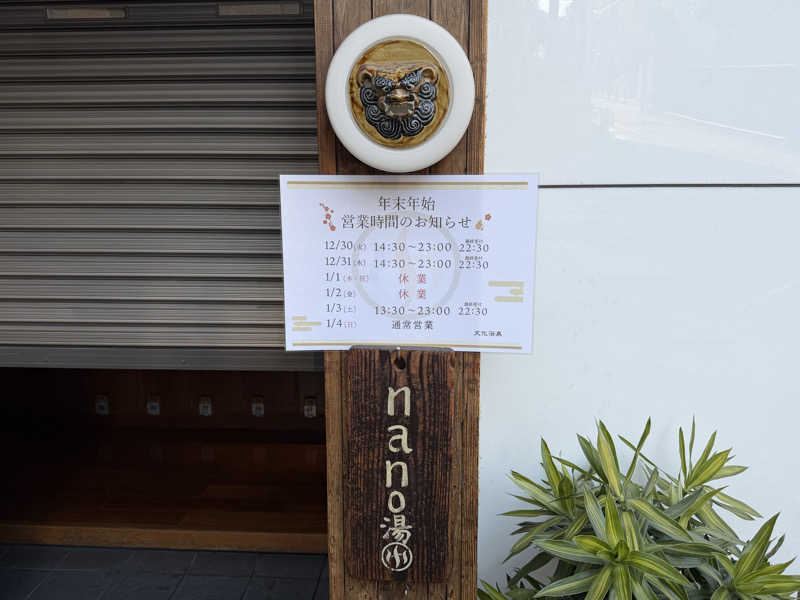 年末年始
営業時間のお知らせ
12/30(火) 14:30～23:00 最終受付 22:30
12/31(水) 14:30～23:00 最終受付 22:30
1/1(木・祝) 休業
1/2(金) 休業
1/3(土) 13:30～23:00 最終受付 22:30
1/4(日) 通常営業
文化浴泉
nano湯